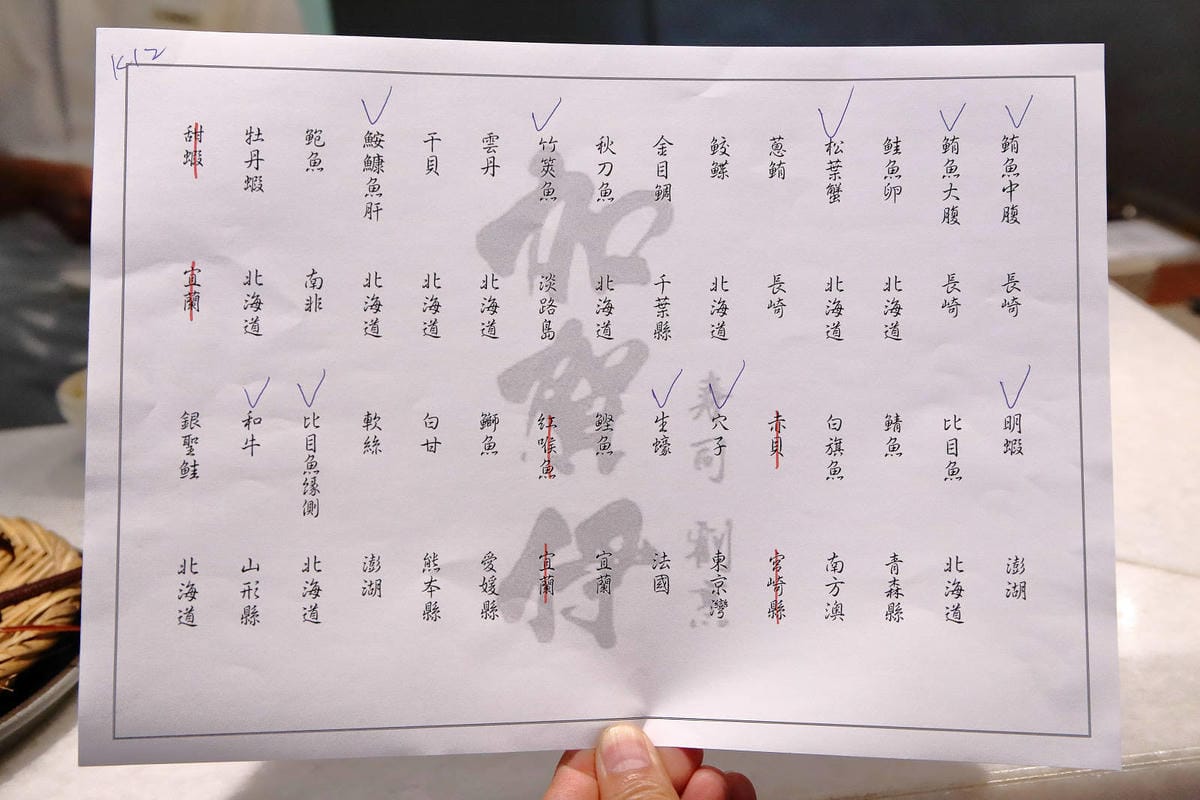 K12
鮪魚中腹 長崎
鮪魚大腹 長崎
鮭魚卵 北海道
松葉蟹 北海道
蔥鮪 長崎
鮫鰈 北海道
金目鯛 千葉縣
秋刀魚 北海道
竹筴魚 淡路島
雲丹 北海道
干貝 北海道
鮟鱇魚肝 北海道
鮑魚 南非
牡丹蝦 北海道
甜蝦 宜蘭
明蝦 澎湖
比目魚 北海道
鯖魚 青森縣
白旗魚 南方澳
赤貝 宮崎縣
穴子 東京灣
生蠔 法國
鰹魚 宜蘭
紅喉魚 宜蘭
鰤魚 愛媛縣
白甘 熊本縣
軟絲 澎湖
比目魚緣側 北海道
和牛 山形縣
銀聖鮭 北海道
加賀伊
壽司 割烹